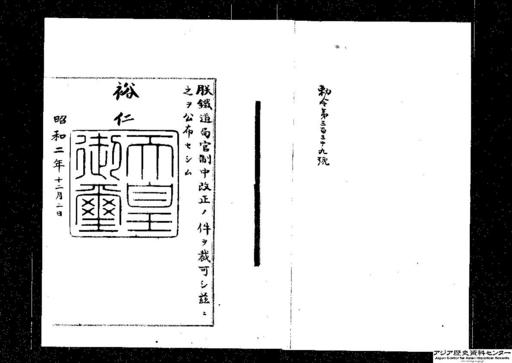 勅令第三百五十九號
朕鐵道局官制中改正ノ件ヲ裁可シ茲ニ
之ヲ公布セシム
裕仁
天皇
御璽
昭和二年十二月二日
アジア歴史資料センター
Japan Center for Asian Historical Records